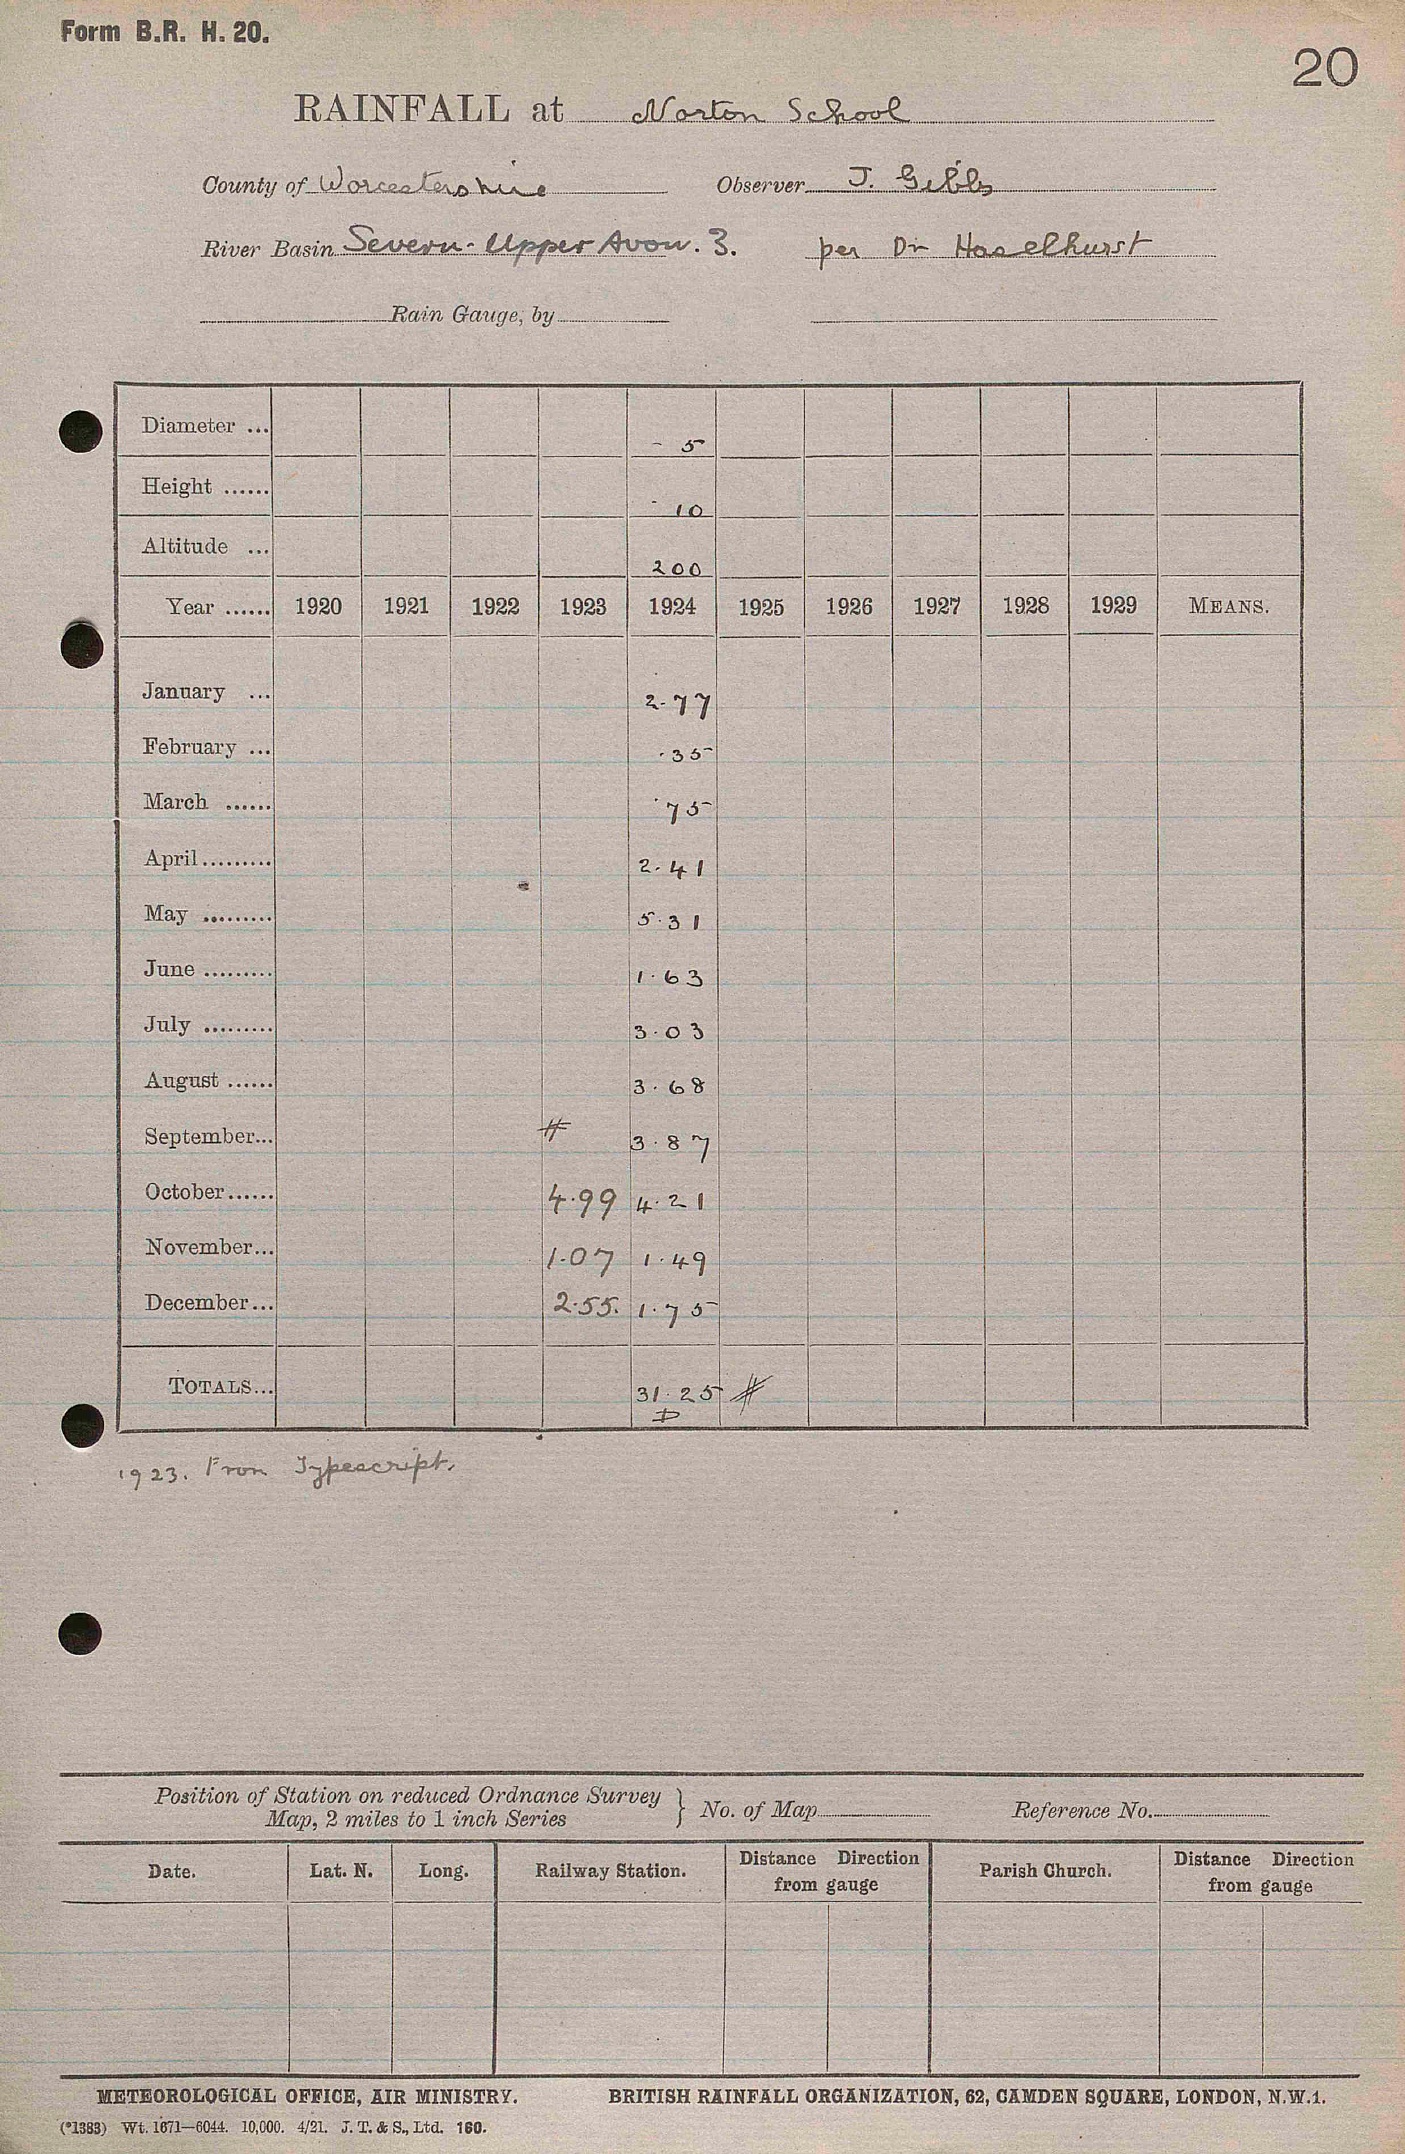 Form B.R. H. 20.
20
RAINFALL at Norton School
County of Worcestershire Observer J. Gibbs
River Basin Severn - Upper Avon. 3. per Dr Haselhurst
Rain Gauge, by
Diameter ... 5
Height ...... 10
Altitude ... 200
Year ...... 1920 1921 1922 1923 1924 1925 1926 1927 1928 1929 MEANS.
January ... 2.77
February ... .35
March ...... .75
April ......... 2.41
May ......... 5.31
June ......... 1.63
July ......... 3.03
August ...... 3.68
September... # 3.87
October...... 4.99 4.21
November... 1.07 1.49
December... 2.55. 1.75
TOTALS... 31.25 #
D
1923. From Typescript.
Position of Station on reduced Ordnance Survey
Map, 2 miles to 1 inch Series } No. of Map Reference No.
Date. Lat. N. Long. Railway Station. Distance Direction from gauge Parish Church. Distance Direction from gauge
METEOROLOGICAL OFFICE, AIR MINISTRY. BRITISH RAINFALL ORGANIZATION, 62, CAMDEN SQUARE, LONDON, N.W.1.
(*1383) Wt. 1671—6044. 10,000. 4/21. J. T. & S., Ltd. 160.